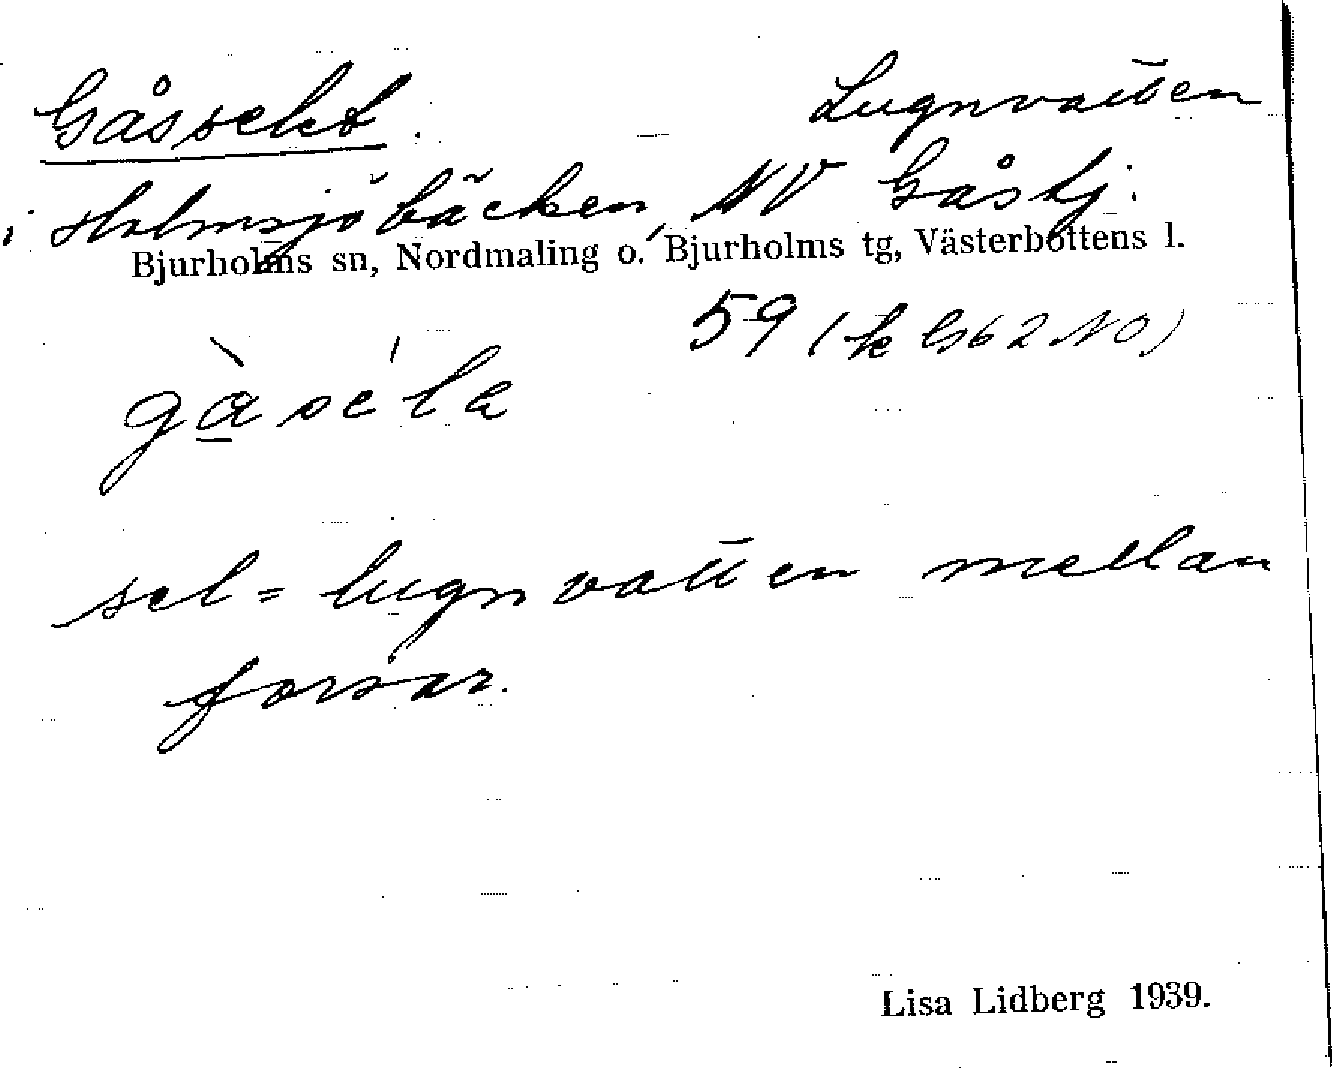 Gåsselet. Lugnvatten
i Holmsjöbäcken, NV Gåstj.
Bjurholms sn, Nordmaling o. Bjurholms tg, Västerbottens l.
59 (k G62 NO)
gàsé'la
sel = lugnvatten mellan
forsar.
Lisa Lidberg 1939.